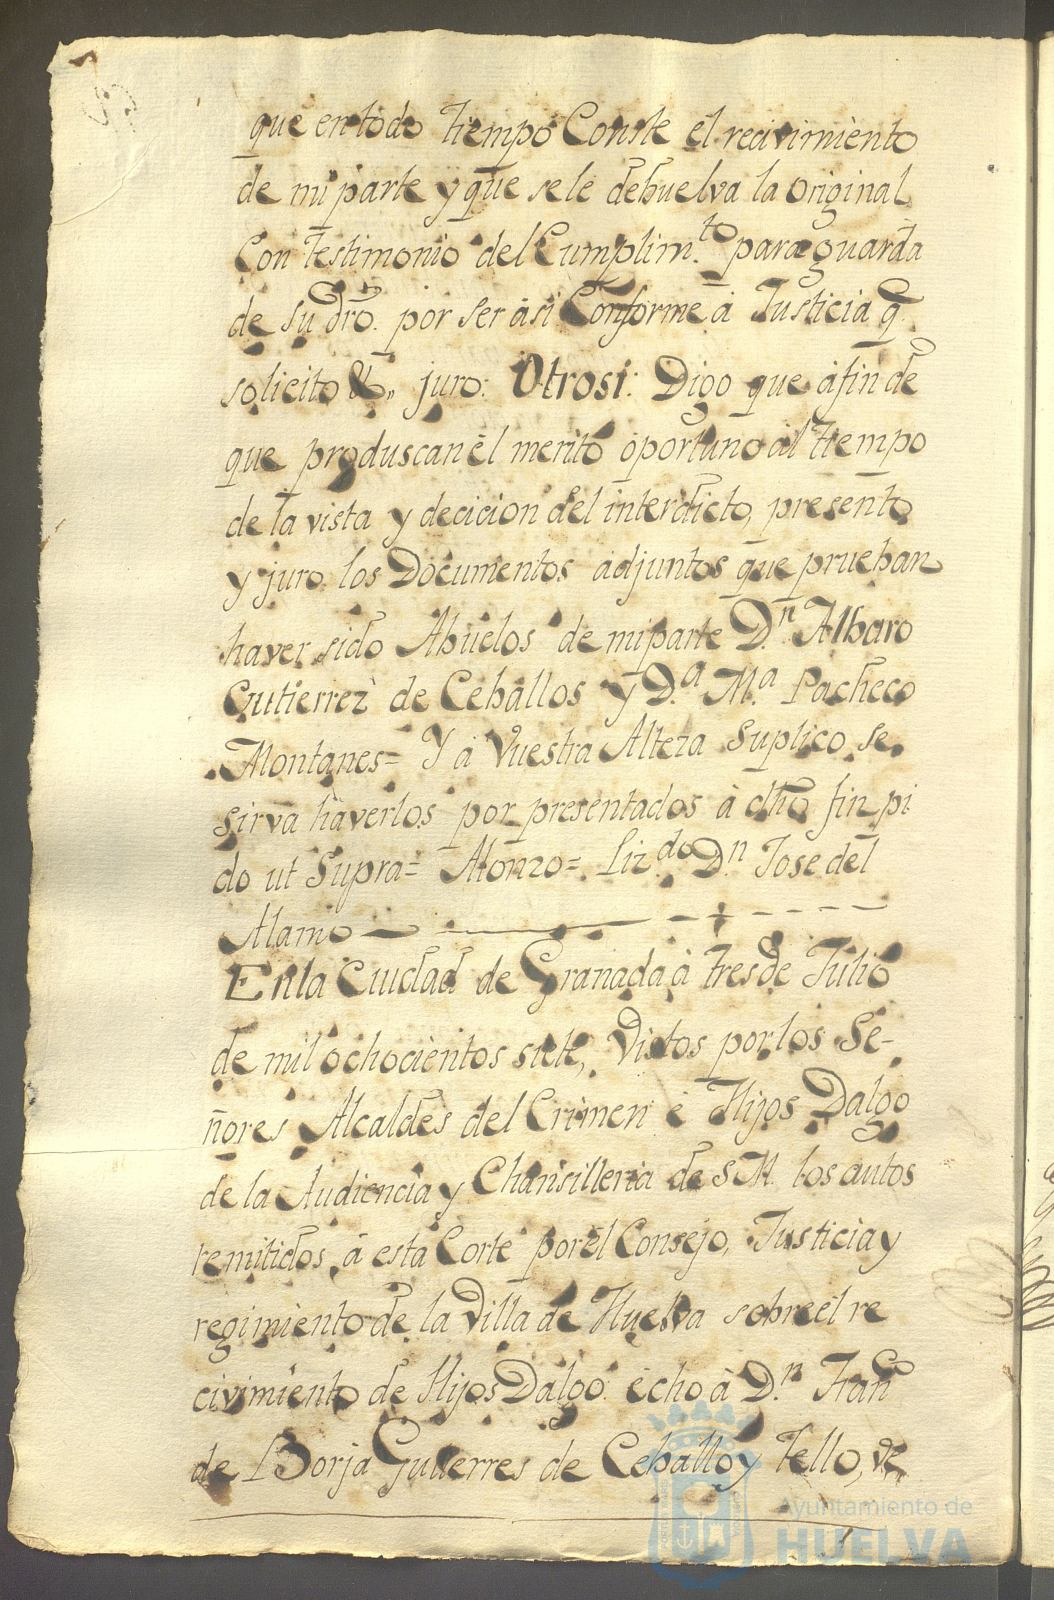 que en todo tiempo Conste el recivimiento
de mi parte y que se le debuelva la original
Con testimonio del Cumplim.to para guarda
de su dro. por ser asi Conforme à Justicia q.
solicito &., juro: Otrosi: Digo que à fin de
que produscan èl merito oportuno àl tiempo
de la vista y decicion del interdicto, presento
y juro los Documentos adjuntos que prueban
haver sido Abuelos de mi parte D.n Albaro
Gutierrez de Ceballos y D.a M.a Pacheco
Montanes= Y a Vuestra Alteza Suplico se
sirva haverlos por presentados à dho fin pi
do ut Supra= Alonzo= Liz.do D.n Jose del
Alamo
En la Ciudad de Granada à tres de Julio
de mil ochocientos siete, Vistos por los Se-
ñores Alcaldes del Crimen è Hijos Dalgo
de la Audiencia y Chansilleria de S M. los autos
remitidos à esta Corte por èl Consejo, Justicia y
regimiento de la Villa de Huelva sobre èl re
civimiento de Hijos Dalgo echo à D.n Fran.co
de Borja Gutierres de Ceballo y Tello, ve
Ayuntamiento de
HUELVA